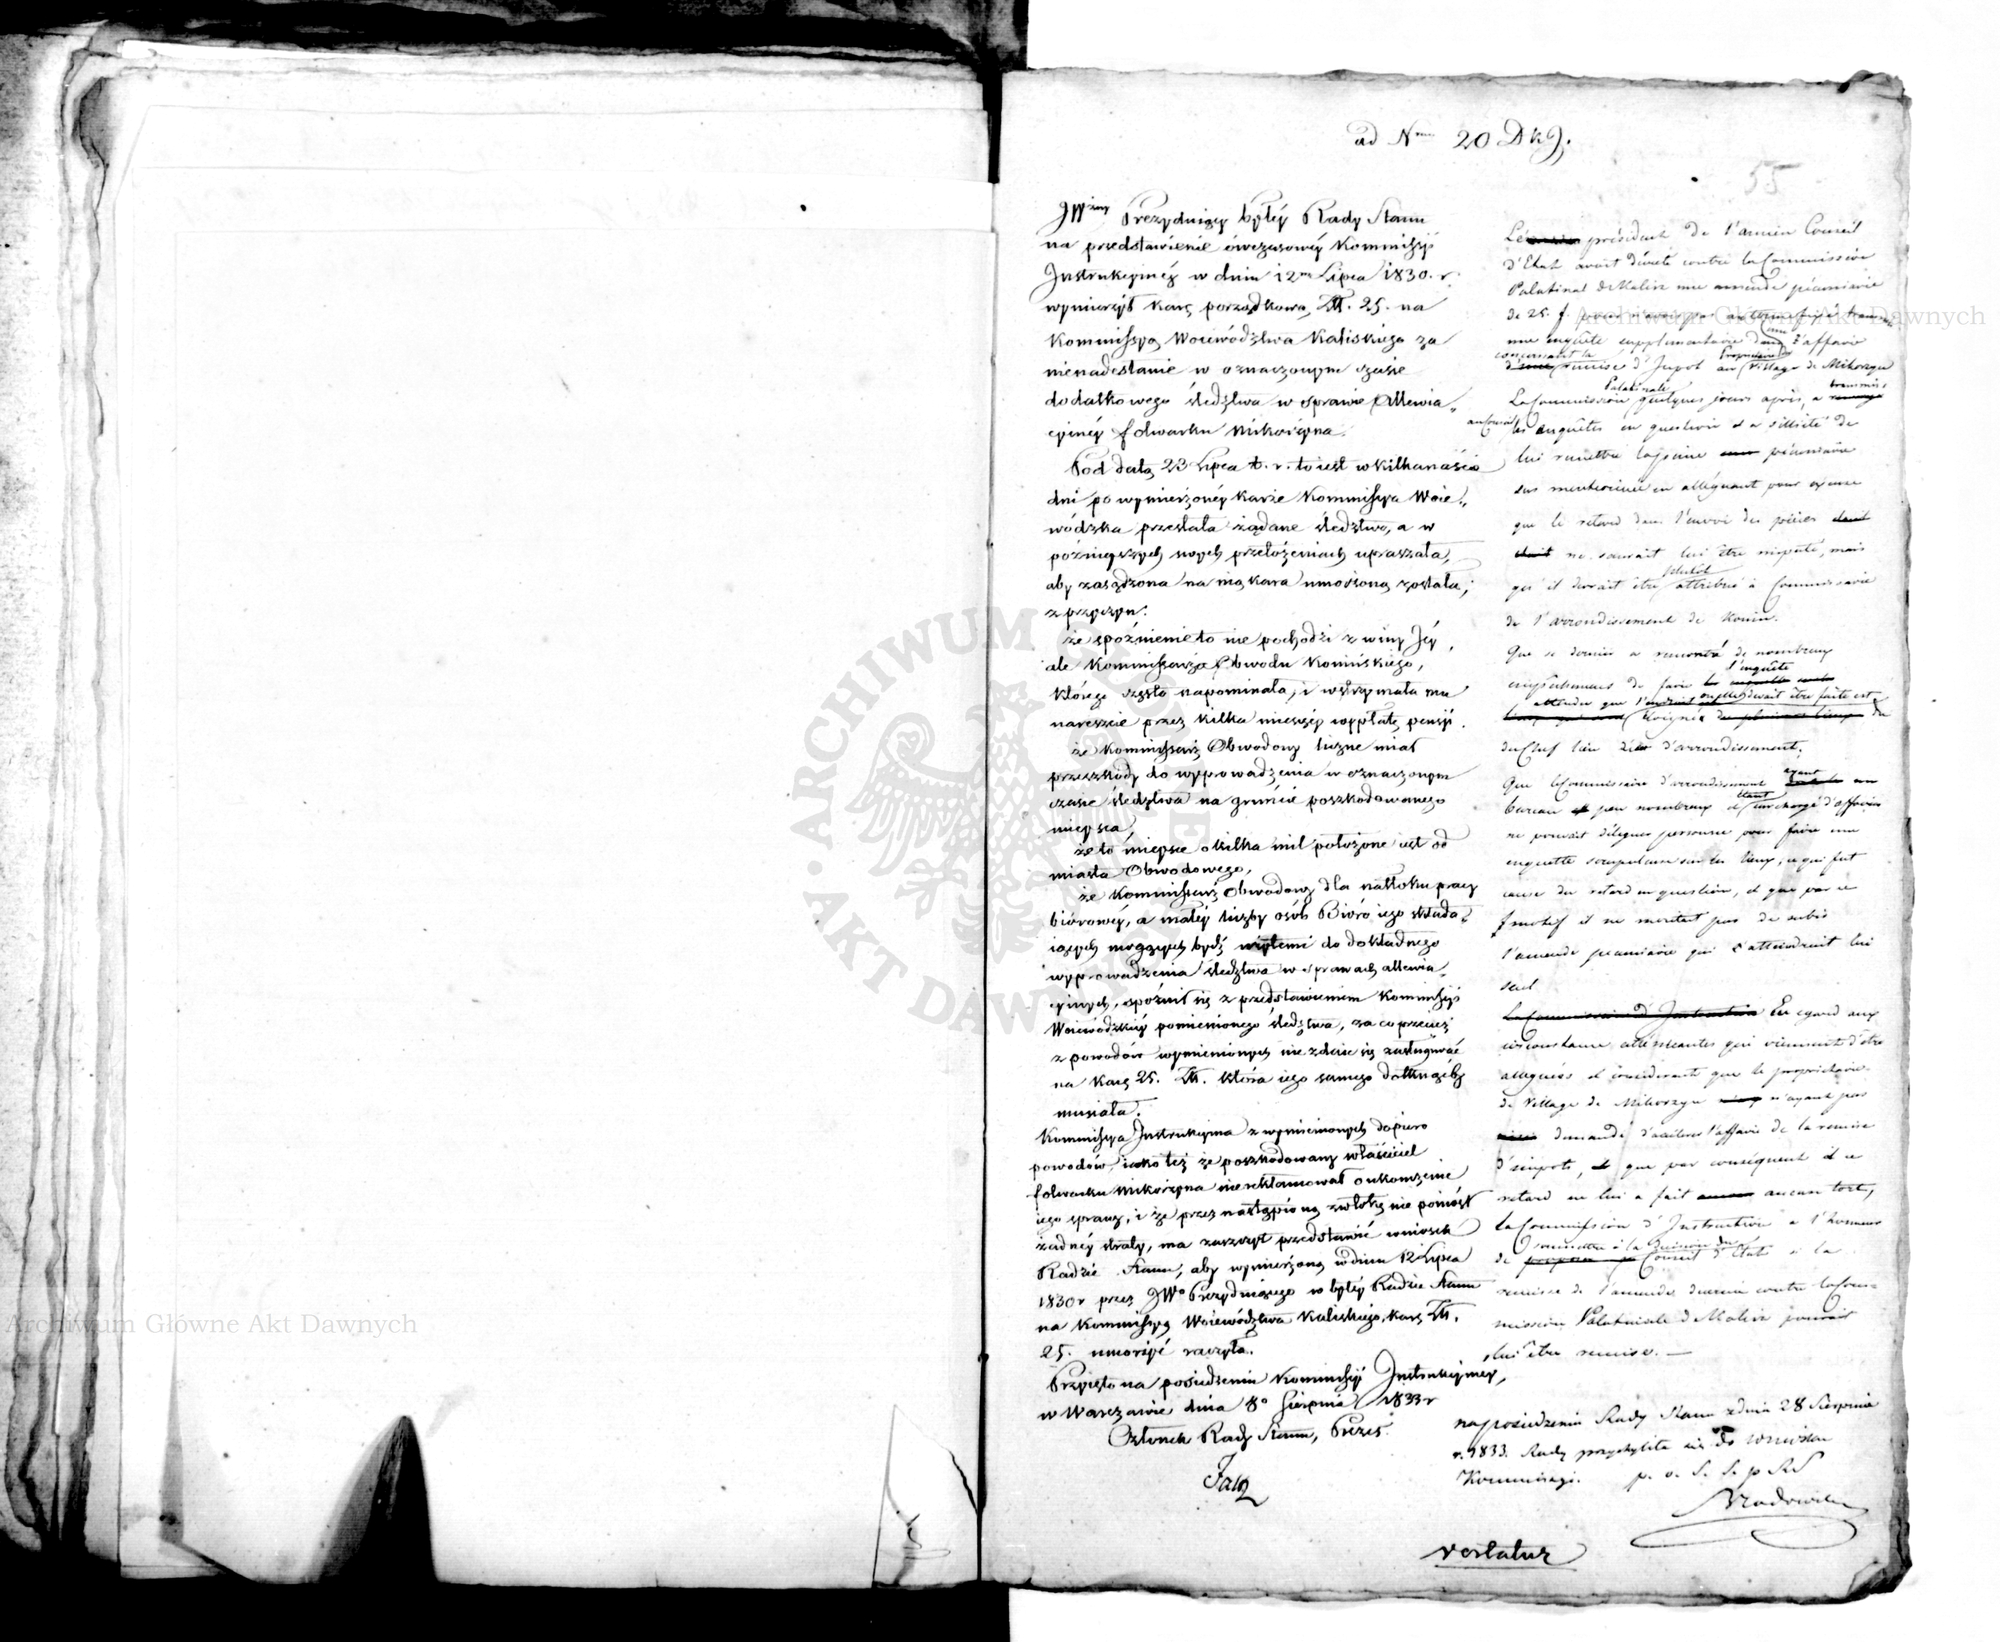 ad Nrum 20 Dkg.
55
JWżny Prezyduiący byłéy Rady Stanu
na przedstawienie ówczasowéy Kommissyi
Instrukcyinéy w dniu 12m Lipca 1830. r.
wymierzył karę porządkową Złt. 25. na
Kommissyą Woiewództwa Kaliskiego za
nienadesłanie w oznaczonym czasie
dodatkowego śledztwa w sprawie Allewia„
cyinéy folwarku Mikorzyna.
Pod datą 23 Lipca t. r. to iest w kilkanaście
dni po wymierzonéy karze Kommissya Woie„
wódzka przesłała żądane śledztwo, a w
późnieyszych swych przełożeniach upraszała,
aby zasądzona na nią kara umorzoną została;
z przyczyn:
że spóźnienie to nie pochodzi z winy Jéy,
ale Kommissarza Obwodu Konińskiego,
którego często napominała, i wstrzymała mu
nareszcie przez kilka miesięcy wypłatę pensyi.
że Kommissarz Obwodowy liczne miał
przeszkody do wyprowadzenia w oznaczonym
czasie śledztwa na gruncie poszkodowanego
mieysca,
że to mieysce o kilka mil położone iest od
miasta Obwodowego,
że Kommissarz Obwodowy dla natłoku pracy
biórowéy, a małéy liczby osób Bióro iego składa„
iących mogących bydź użytemi do dokładnego
wyprowadzenia śledztwa w sprawach allewia„
cyinych, spóźnił się z przedstawieniem Kommissyi
Woiewódzkiéy pomienionego śledztwa, za co przecież
z powodów wymienionych nie zdaie się zasługiwać
na karę 25. Złt. która iego samego dotknąćby
musiała.
Kommissya Instrukcyina z wymienionych dopiero
powodów, iako też że poszkodowany właściciel
folwarku Mikorzyna nie reklamował o ukończenie
iego sprawy, i że przez nastąpioną zwłokę nie poniósł
żadnéy straty, ma zaszczyt przedstawić wniosek
Radzie Stanu, aby wymierzoną w dniu 12 Lipca
1830 r przez JWo Prezyduiącego w byłéy Radzie Stanu
na Kommissyą Woiewództwa Kaliskiego, karę Złt.
25. umorzyć raczyła.
Przyięto na posiedzeniu Kommissyi Instrukcyinéy,
w Warszawie dnia 8o Sierpnia 1833 r
Członek Rady Stanu, Prezes
président de l'ancien Conseil
d'Etat avait décreté contre la Commission
Palatinal de Kalisz une amende pécuniaire
de 25. f. pour n'avoir pas au terme fixé transmis
une enquête supplémentaire dans l'affaire
concernant la remise d'Impot au Propriétaire du village de Mikorzyn
La Commission Palatinale quelques jours après, a transmis
au Conseil les enquêtes en question et a sollicité de
lui remettre la peine pécuniaire
sus mentionnée en alléguant pour excuse
que le retard dans l'envoi des pièces
ne saurait lui être imputé, mais
qu'il devrait être plutôt attribué à Commissaire
de l'arrondissement de Konin.
Que ce dernier a rencontré de nombreux
empêchemens de faire l'enquête
attendu que l'endroit où elle devait être faite est
éloigné du
du Chef lieu d'arrondissement.
Que le Commissaire d'arrondissement ayant un
bureau peu nombreux et étant surchargé d'affaires
ne pouvait déléguer personne pour faire une
enquette scrupuleuse sur les lieux, ce qui fut
cause du retard en question, et que par ce
motif il ne meritait pas de subir
l'amende pecuniaire qui l'atteindrait lui
seul
La Commission d'Instruction En egard aux
circonstances atténuantes qui viennent d'être
alleguées et considerant que le propriétaire
de village de Mikorzyn n'ayant pas
demandé d'accélerer l'affaire de la remise
d'impots, et que par conséquent et ce
retard ne lui a fait aucun tort,
La Commission d'Instruction a l'honneur
de soumettre à la décision du Conseil d'Etat si la
remise de l'amende decrétée contre la Com-
mission Palatinale de Kalisz pouvait
lui être remise. —
na posiedzeniu Rady Stanu z dnia 28 Sierpnia
r. 1833. Rada przychyliła się do wniosku
Kommissyi.
p. o. S. S. p R S
vertatur
Archiwum Główne Akt Dawnych
Archiwum Główne Akt Dawnych
ARCHIWUM GŁÓWNE AKT DAWNYCH